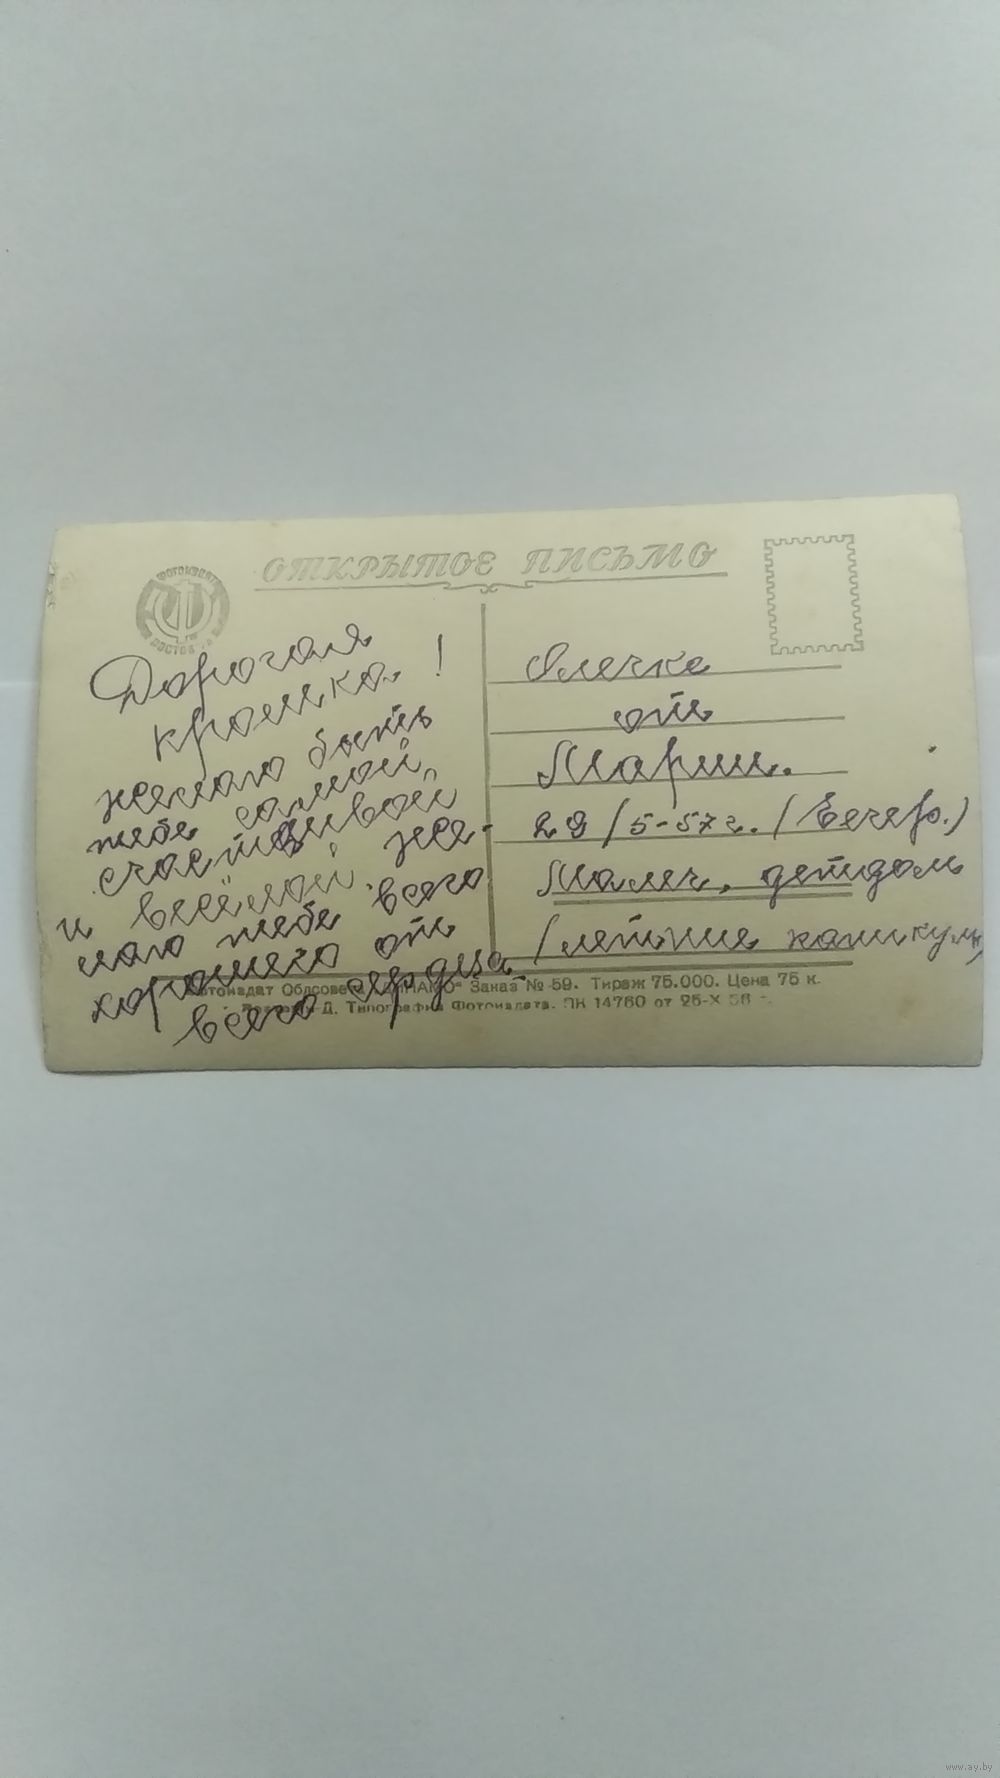 ОТКРЫТОЕ ПИСЬМО
Дорогая
крошка !
желаю быть
тебе самой
счастливой
и весёлой, же-
лаю тебе всего
хорошего от
всего сердца.
Олечке
от
Марии.
29/5-57 г. (Вечер.)
Малеч. детдом
(летние каникулы)
Заказ № 59. Тираж 75.000. Цена 75 к.
Типография Фотоиздата. ПК 14760 от 25-X 56 г.
www.ay.by